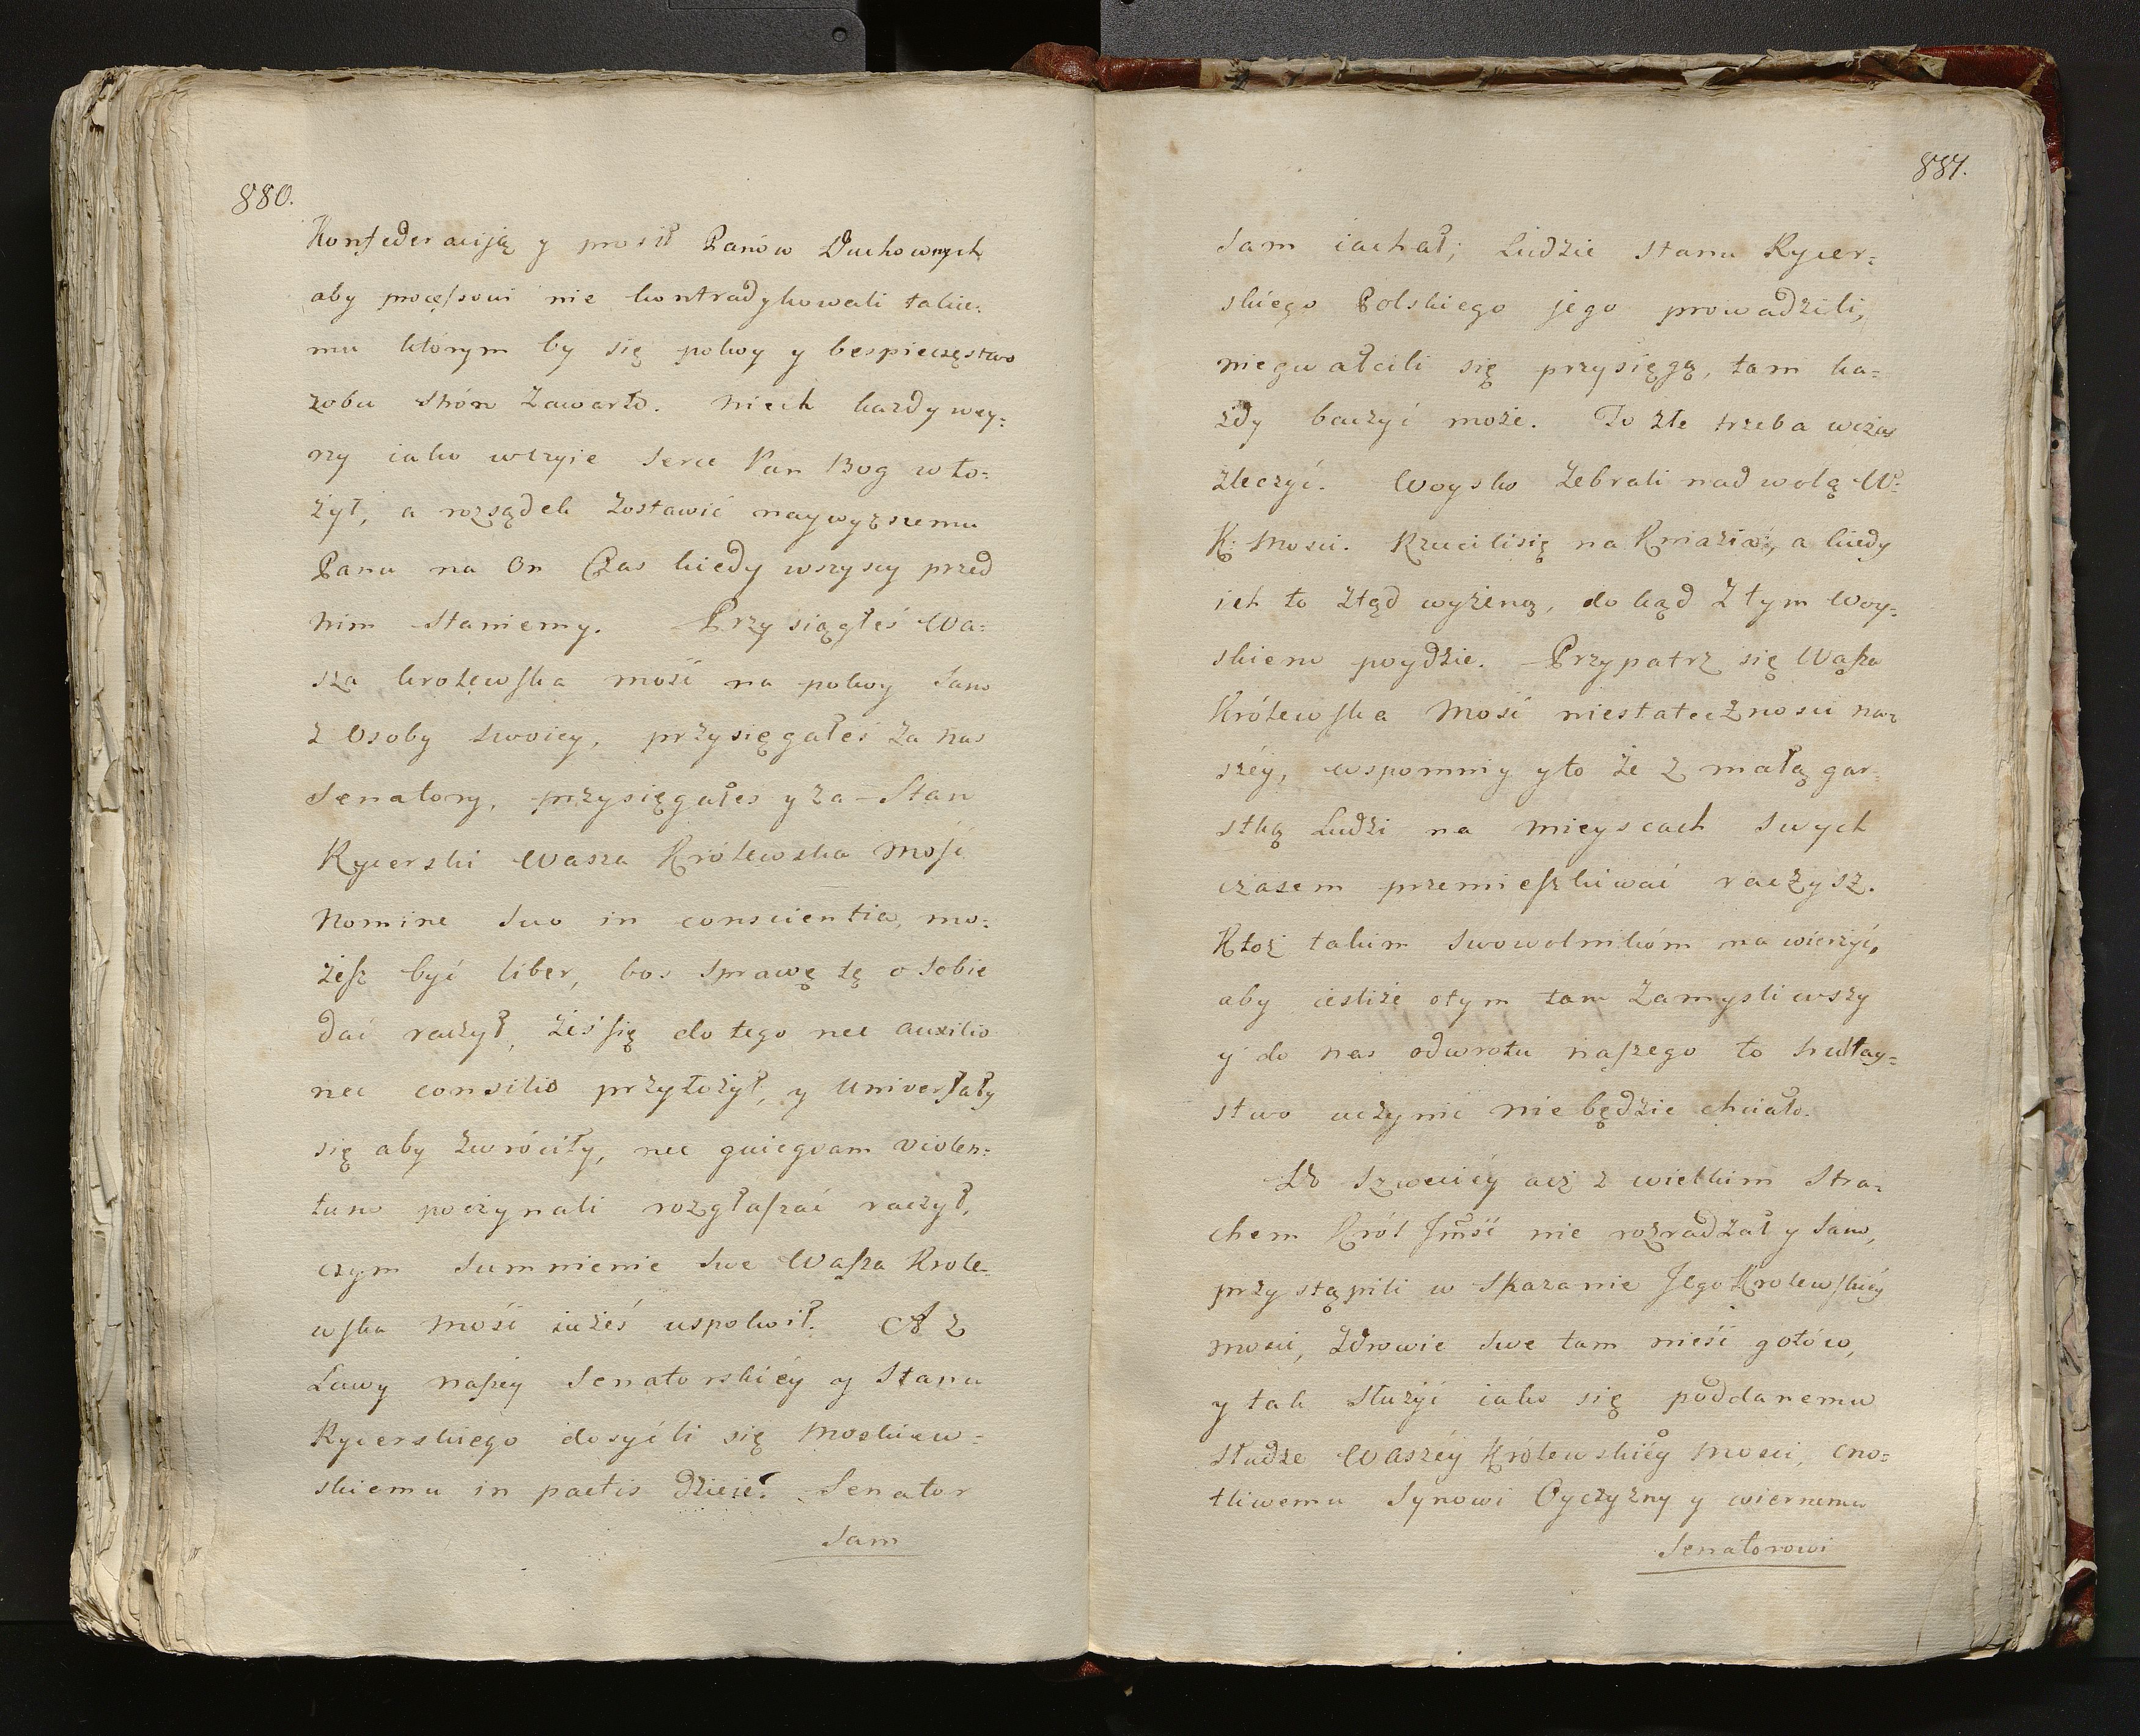 880.
Konfederaciją y prosił Panów Duchownych
aby processowi nie kontradykowali takie:
mu którym by się pokoy y bespieczęstwo
zobu Strón Zawarło. Niech każdy wey:
rzy iako wczyie Serce Pan Bog wło:
żył, a rozsądek Zostawić naywyższemu
Panu na On Czas kiedy wszyscy przed
Nim Staniemy. Przysiągłeś Wa:
sza krolewska mość na pokoy Sam
z Osoby Swoiey, przysięgałeś za nas
Senatory, przysięgałeś y za Stan
Rycerski Wasza Królewska Mość
Nomine Suo in conscientia, mo:
żesz być liber, boś Sprawę tę o Sobie
dać raczył, żeś się do tego nec auxilio
nec consilio przyłożył, y Uniwersały
się aby zwróciły, nec quicquam violen:
tum poczynali rozgłaszać raczył,
czym Sumnienie Swe Wasza Krole-
wska Mość iużeś uspokoił. A z
Ławy naszey Senatorskiéy y Stanu
Rycerskiego dosyćli się Moskiew=
skiemu in pactis dzieie? Senator
Sam
881.
Sam iachał; Ludzie Stanu Rycer=
skiego Polskiego jego prowadzili,
niegwałcili się przysięgą, tam ka=
żdy baczyć może. To złe trzeba wczas
zleczyć. Woysko Zebrali nad wolą W:
K: Mosci. Rzucilisię na Kniazia, a kiedy
ich to ztąd wyżeną, dokąd Z tym Woy=
skiem poydzie. Przypatrz się Wasza
Królewska Mość niestateczności na=
széy, wspomniy y to że z małą gar=
stką Ludzi na mieyscach Swych
czasem przemieszkiwać raczysz.
Ktoż takim Swowolnikóm ma wierzyć,
aby iesliże otym tam Zamysliwszy
y do nas odwrotu naszego to hultay=
stwo uczynić nie będzie chciało.
Do Szweciéy acz z wielkim Stra=
chem Król Jmść nie rozradzał y Sam,
przystąpili w Skazanie Jego Krolewskiéy
mosci, Zdrowie Swe tam nieść gotów,
y tak Służyć iako się poddanemu
Słudze Waszéy Królewskiéy Mosci, cno=
tliwemu Synowi Oyczyzny y wiernemu
Senatorowi